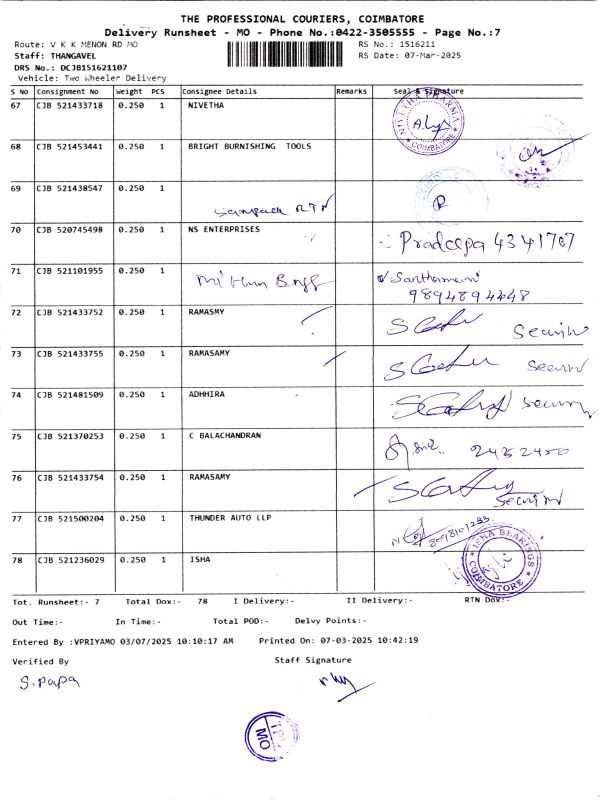 THE PROFESSIONAL COURIERS, COIMBATORE
Delivery Runsheet - MO - Phone No.:0422-3505555 - Page No.:7
Route: V K K MENON RD MO
RS No.: 1516211
Staff: THANGAVEL
RS Date: 07-Mar-2025
DRS No.: DCJB151621107
Vehicle: Two Wheeler Delivery
S No Consignment No Weight PCS Consignee Details Remarks Seal & Signature
67 CJB 521433718 0.250 1 NIVETHA
NIVETHA PHARMA COIMBATORE
68 CJB 521453441 0.250 1 BRIGHT BURNISHING TOOLS
69 CJB 521438547 0.250 1
70 CJB 520745498 0.250 1 NS ENTERPRISES
Pradeepa 4341707
71 CJB 521101955 0.250 1
9894894448
72 CJB 521433752 0.250 1 RAMASMY
73 CJB 521433755 0.250 1 RAMASAMY
74 CJB 521481509 0.250 1 ADHHIRA
75 CJB 521370253 0.250 1 C BALACHANDRAN
76 CJB 521433754 0.250 1 RAMASAMY
77 CJB 521500204 0.250 1 THUNDER AUTO LLP
78 CJB 521236029 0.250 1 ISHA
ISHA BEARINGS COIMBATORE
Tot. Runsheet:- 7 Total Dox:- 78 I Delivery:- II Delivery:- RTN Dox:-
Out Time:- In Time:- Total POD:- Delvy Points:-
Entered By :VPRIYAMO 03/07/2025 10:10:17 AM Printed On: 07-03-2025 10:42:19
Verified By Staff Signature
S. Papa
MO